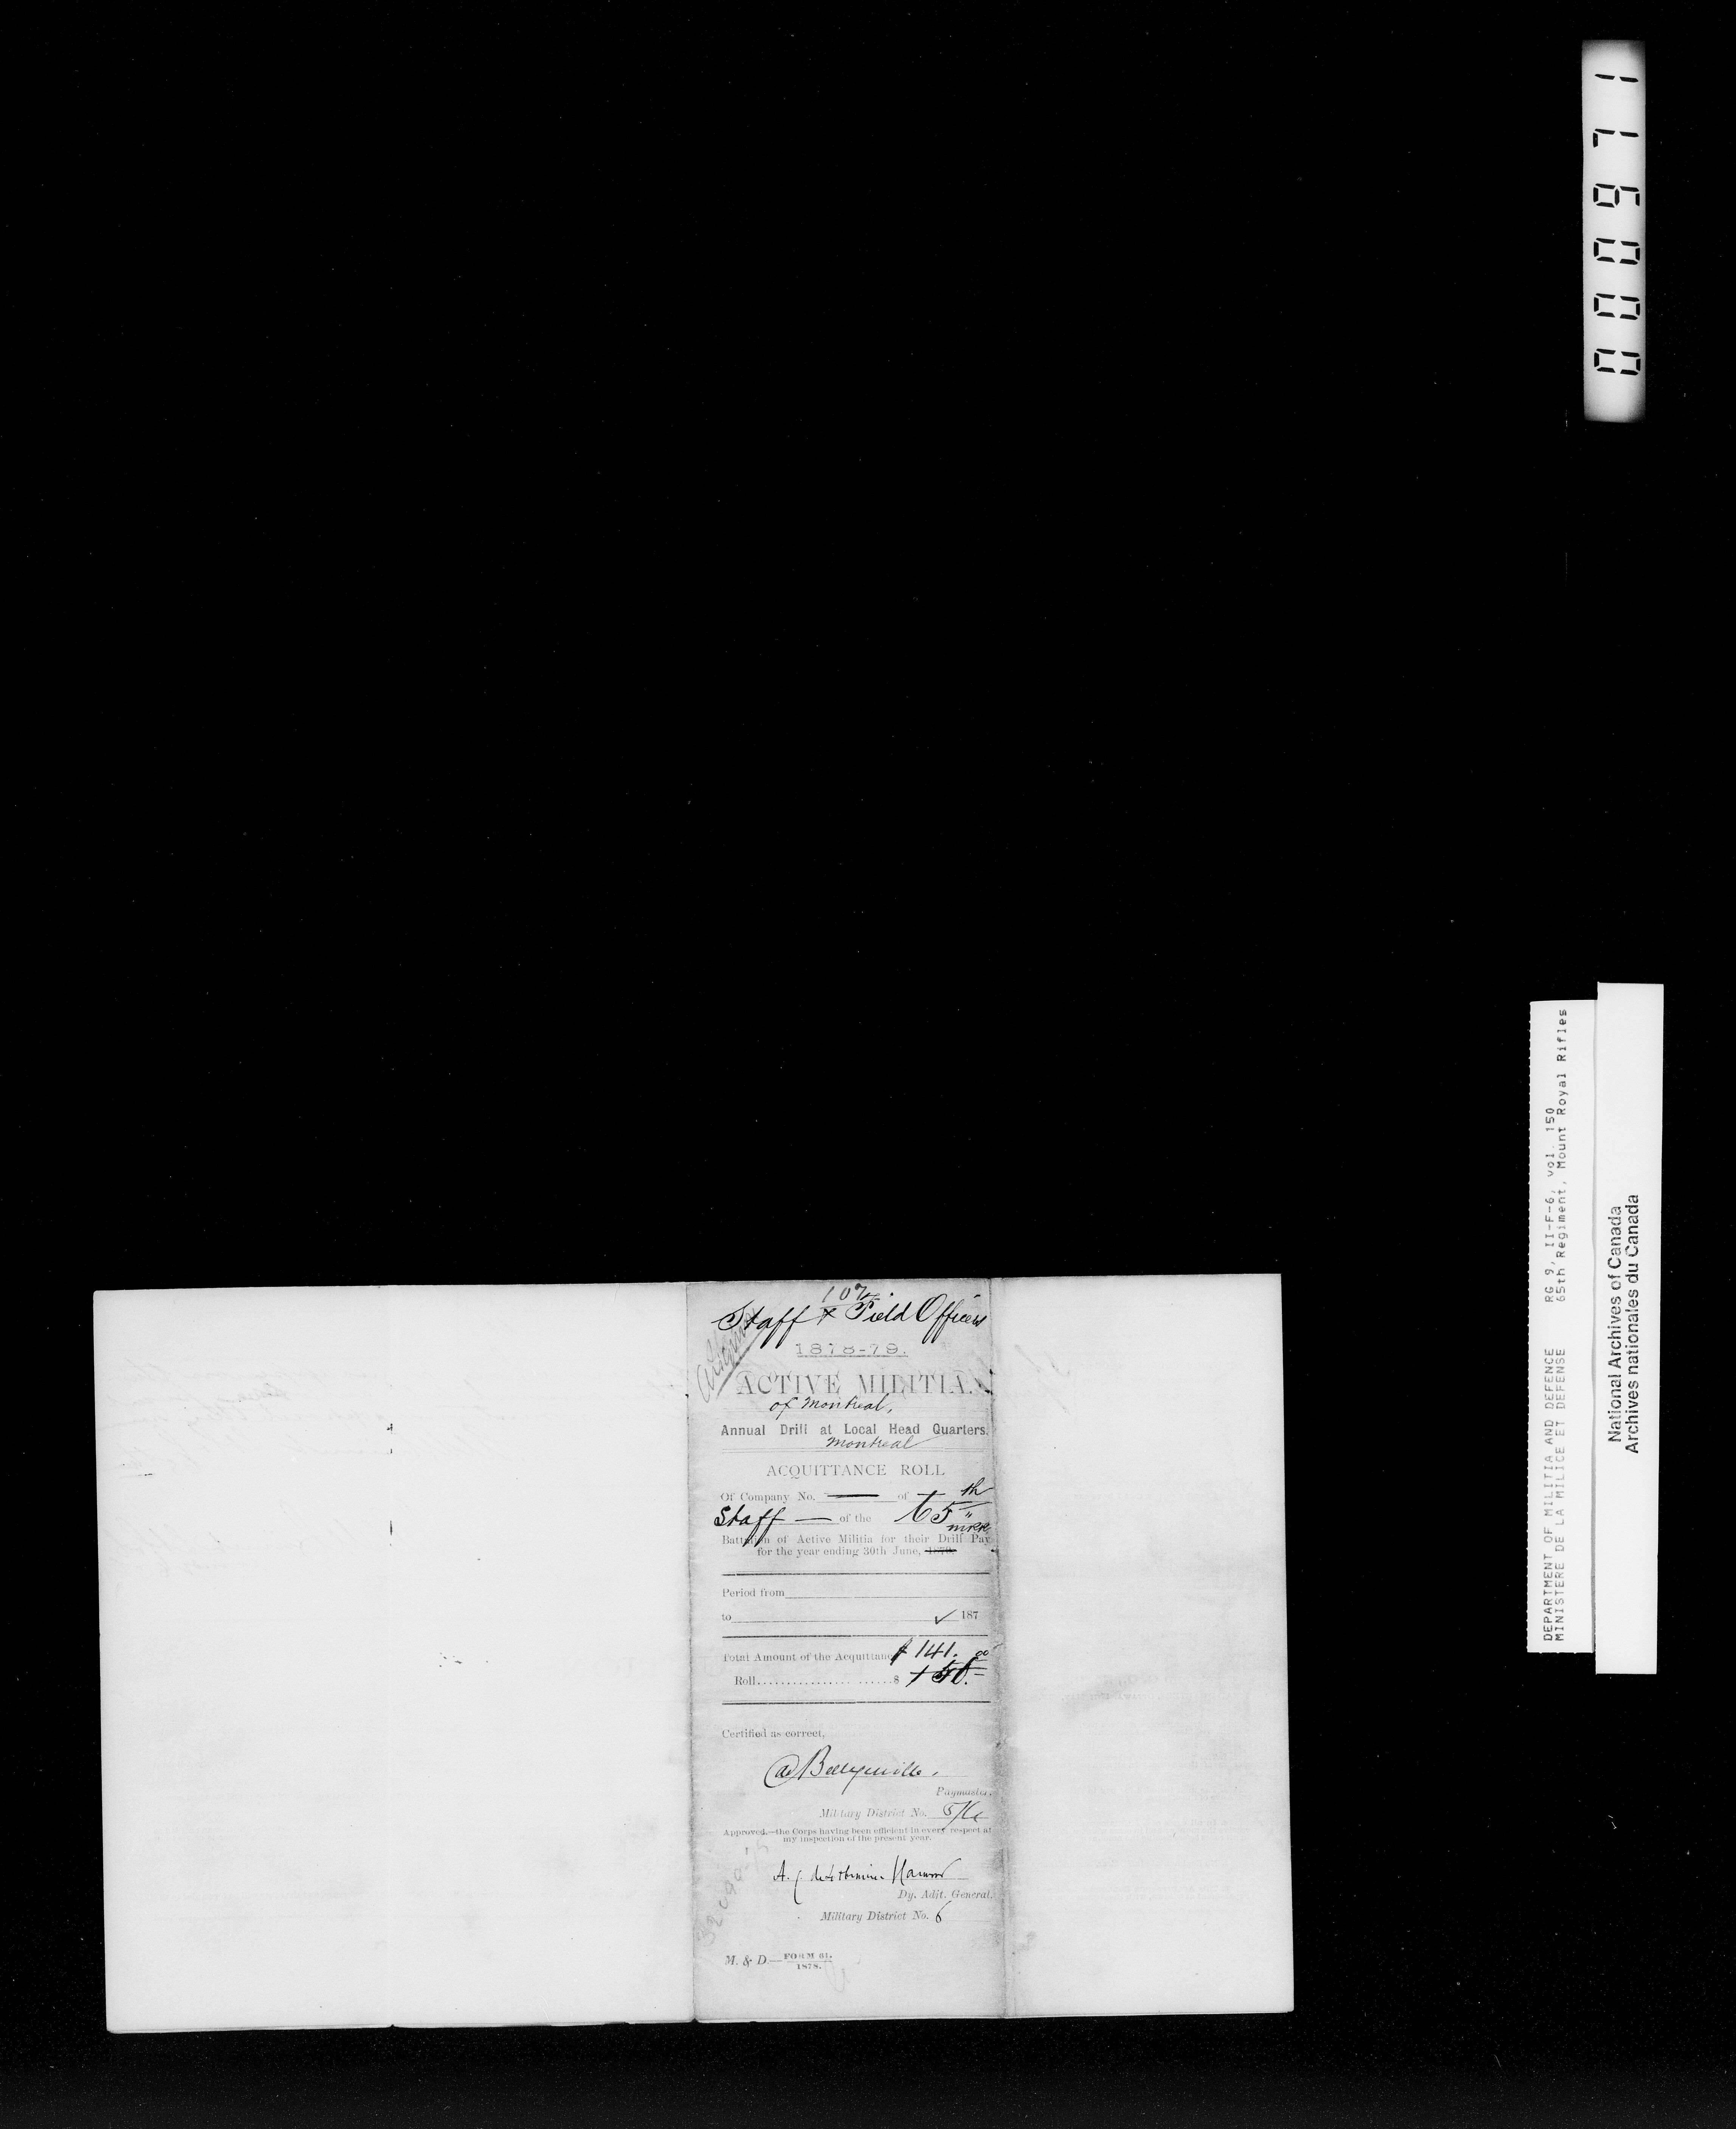 107
Staff & Field Officers
1878-79.
ACTIVE MILITIA.
of Montreal,
Annual Drill at Local Head Quarters.
Montreal
ACQUITTANCE ROLL
Of Company No. — of
Staff — of the 65th
MRR
Battalion of Active Militia for their Drill Pay
for the year ending 30th June, 1879.
Period from
to 187
Total Amount of the Acquittance $141.00
Roll......................$ 150.
Certified as correct,
Paymaster,
Military District No. 5/6
Approved.—the Corps having been efficient in every respect at
my inspection of the present year.
Harwood
Dy. Adjt. General.
Military District No. 6
M. & D.—FORM 61.
1878.
000671
DEPARTMENT OF MILITIA AND DEFENCE RG 9, II-F-6, vol. 150
MINISTERE DE LA MILICE ET DEFENSE 65th Regiment, Mount Royal Rifles
National Archives of Canada
Archives nationales du Canada